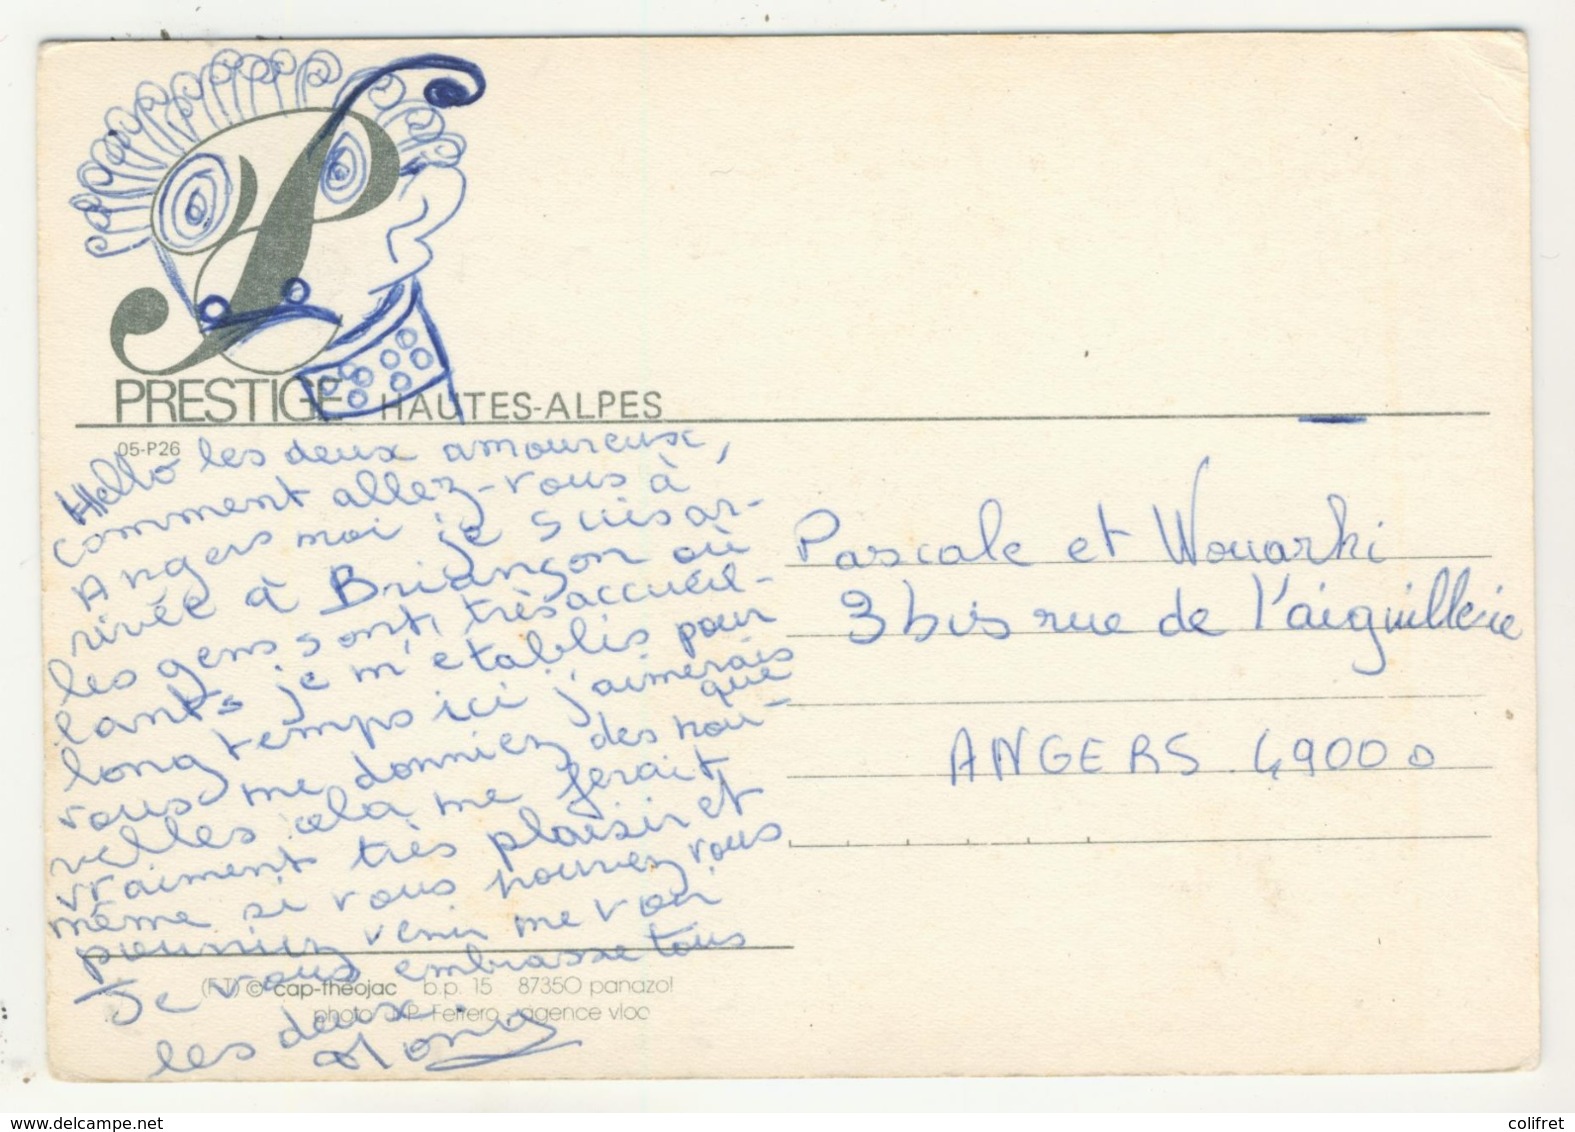 PRESTIGE HAUTES-ALPES
05-P26
Hello les deux amoureux,
comment allez-vous à
Angers moi je suis ar-
rivée à Briançon où
les gens sont très accueil-
lants je m'etablis pour
longtemps ici j'aimerais
que
vous me donniez des nou-
velles cela me ferait
vraiment très plaisir et
même si vous pouviez vous
pourriez venir me voir
Je vous embrasse tous
les deux.
Pascale et Wouarki
3 bis rue de l'aiguillerie
ANGERS 49000
(F.T) © cap-theojac b.p. 15 87350 panazol
photo J.P. Ferrero - agence vloo
delcampe.net
colifret